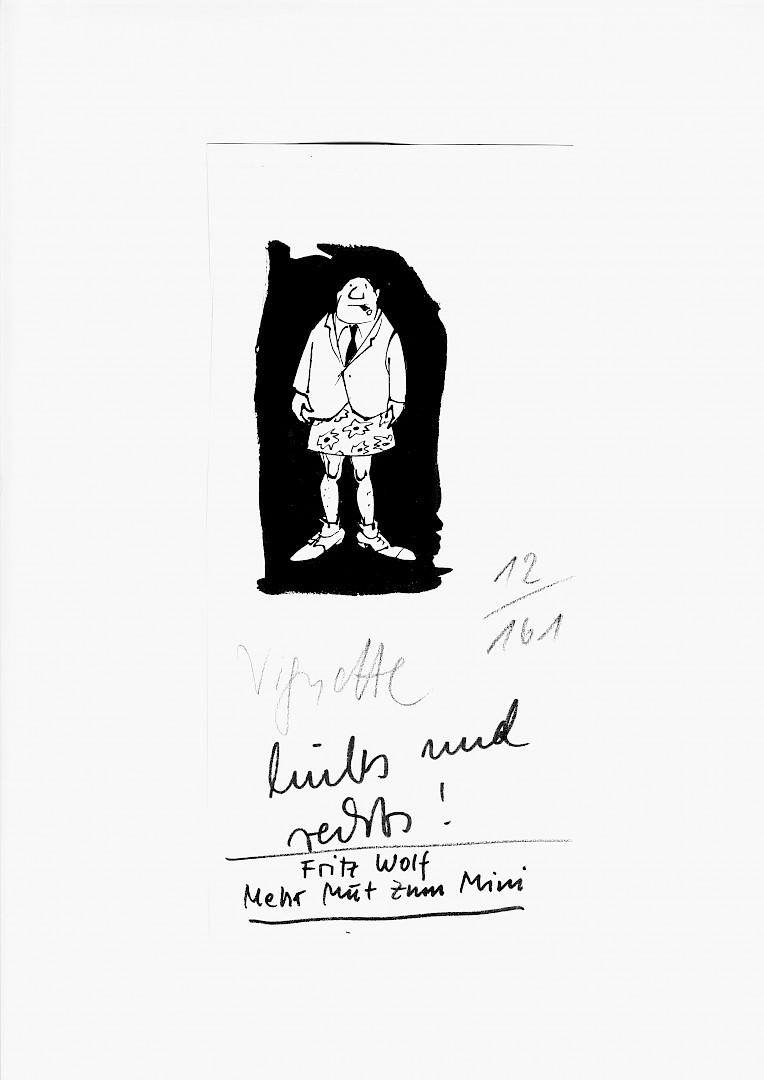 12
161
Vignette
links und
rechts!
Fritz Wolf
Mehr Mut zum Mini